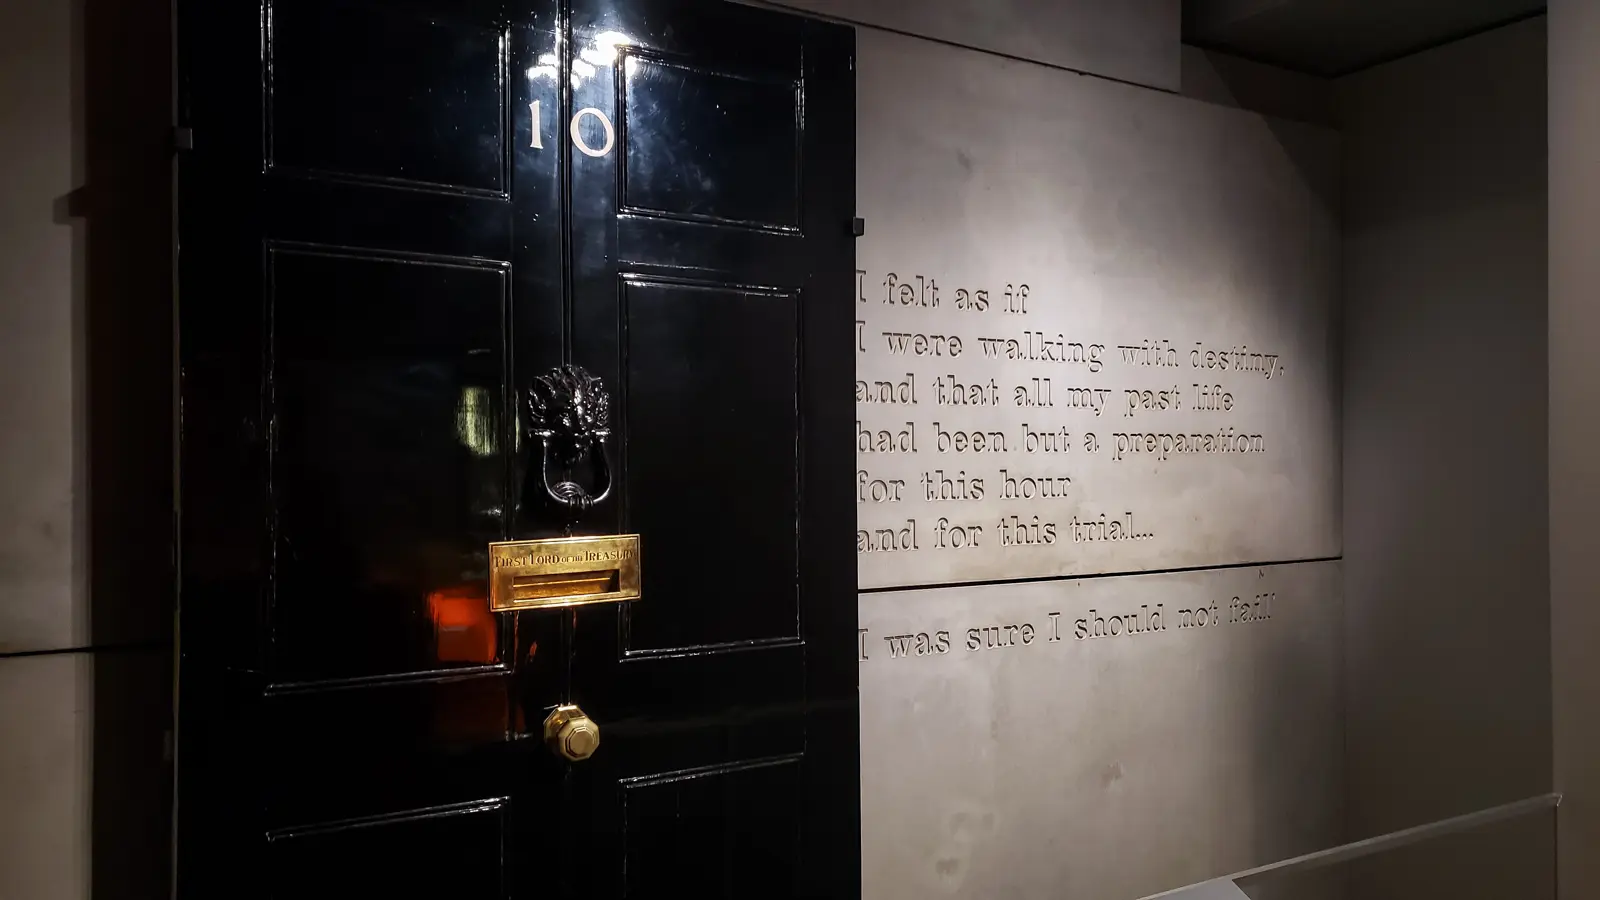 10
FIRST LORD OF THE TREASURY
I felt as if
I were walking with destiny,
and that all my past life
had been but a preparation
for this hour
and for this trial...
I was sure I should not fail